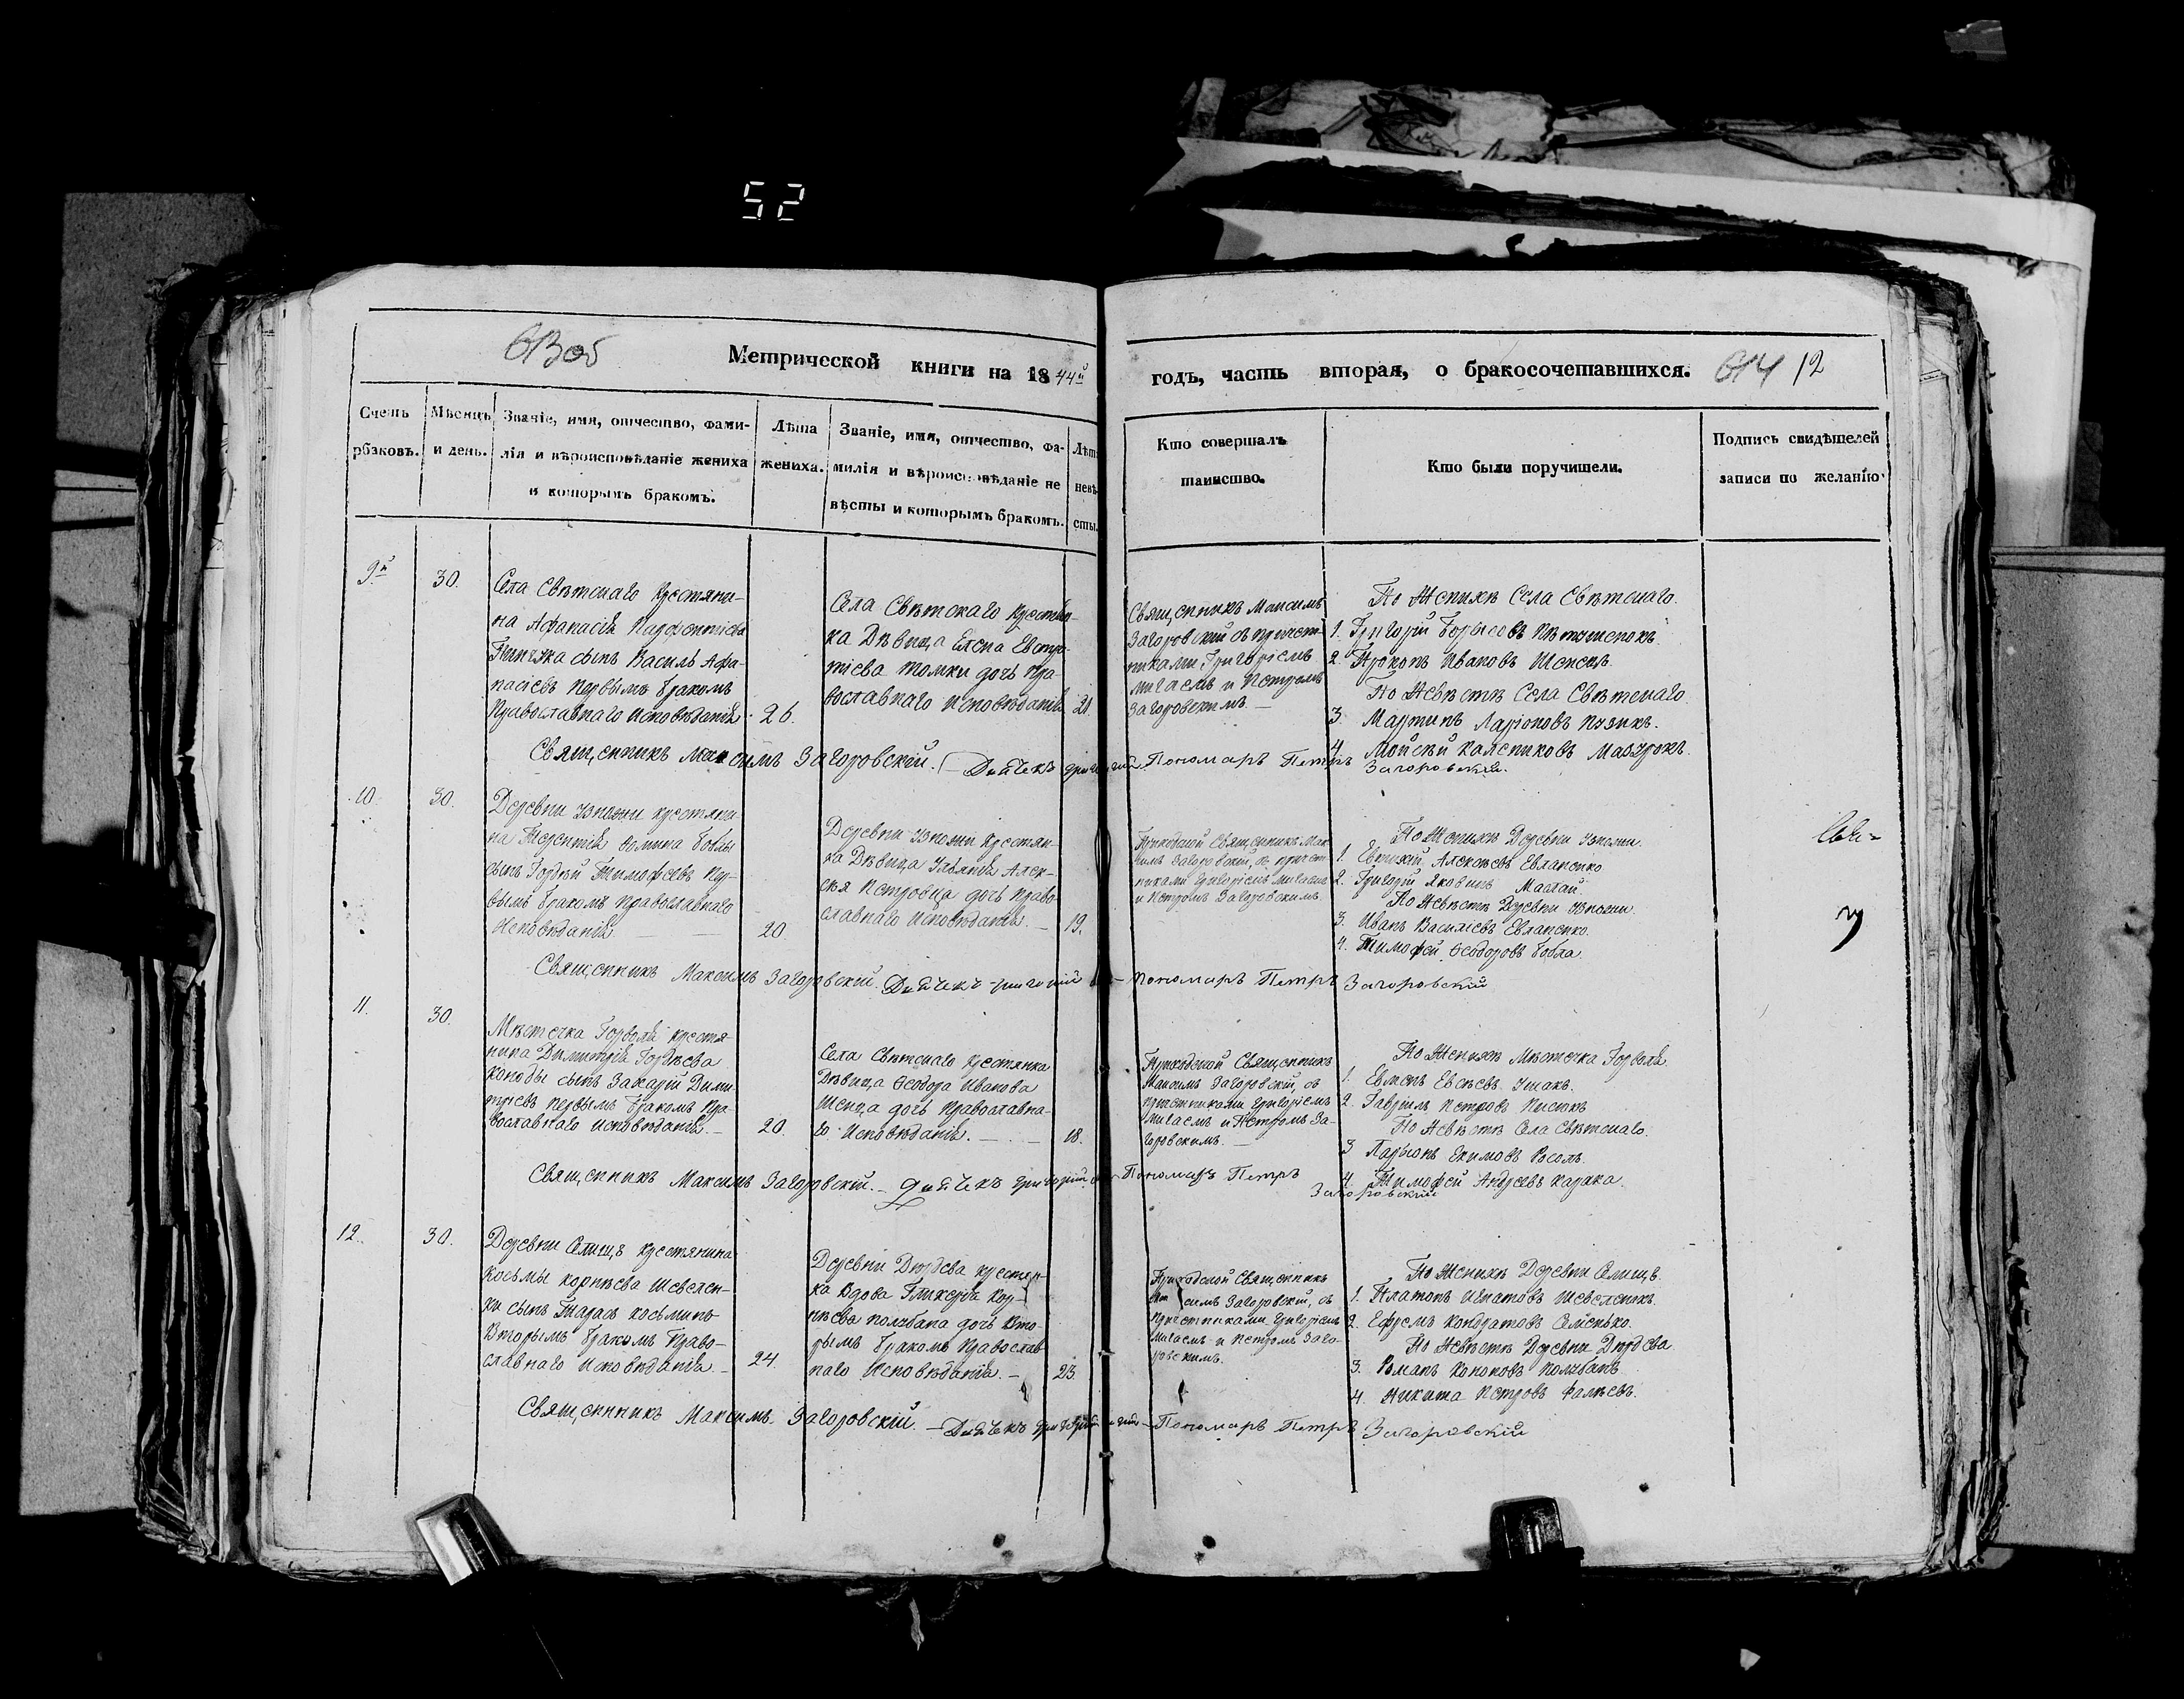 52
Метрической книги на 1844й годъ, часть вторая, о бракосочетавшихся. 12
Счетъ
рбаковъ.
Мѣсяцъ
и день.
Званіе, имя, отчество, фами-
лія и вѣроисповѣданіе жениха
и которымъ бракомъ.
Лѣта
жениха.
Званіе, имя, отчество, фа-
милія и вѣроисповѣданіе не
вѣсты и которымъ бракомъ.
Лѣт
невѣ
сты.
Кто совершалъ
таинство.
Кто были поручители.
Подпись свидѣтелей
записи по желанію
9й
30.
Села Свѣтскаго Крестяни-
на Афанасія
сынъ Василь Афа-
насіевъ первымъ бракомъ
Православнаго Исповѣданія
26.
Села Свѣтскаго Крестян-
ка Дѣвица Елена Евстра-
тіева Томки дочь Пра-
вославнаго Исповѣданія
21.
Священникъ Максимъ
Загоровскій съ причет-
никами Григоріемъ
Мигаемъ и Петромъ
Загоровскимъ. —
По Женихѣ Села Свѣтскаго.
1. Григорій Борысовъ
2. Прокопъ Ивановъ
По Невѣстѣ Села Свѣтскаго
3. Мартинъ Ларіоновъ
4. Мойсей Калениковъ
Священникъ Максимъ Загоровскій. — Дьячекъ Григорій Пономаръ Петръ
Загоровскій.
10.
30.
Деревни Узножи крестяни-
на Терентія Бобы
сынъ Гордѣй Тимофеевъ Пер-
вымъ Бракомъ Православнаго
Исповѣданія
20.
Деревни Узножи Крестян-
ка Дѣвица Ульянія Алек-
сѣя Петровца дочь Право-
славнаго Исповѣданія. —
19.
Приходскій Священникъ Мак-
симъ Загоровскій, съ причет-
никами Григоріемъ Мигаемъ
и Петромъ Загоровскимъ
По Женихѣ Деревни Узножи
1. Алексѣевъ Евланенко
2. Григорій Яковивъ Маслай
По Невѣстѣ Деревни Узножи.
3. Иванъ Василіевъ Евланенко.
4. Тимофей Ѳеодоровъ Бобла.
Священникъ Максимъ Загоровскій. Дьячекъ Григорій — Пономаръ Петръ Загоровскій
11.
30.
Мѣстечка Горволя Крестя-
нина Димитрія Гордѣева
Коноды сынъ Захарій Дими-
тріевъ первымъ Бракомъ Пра-
вославнаго Исповѣданія. —
20.
Села Свѣтскаго Крестянка
Дѣвица Ѳеодора Иванова
Шенца дочь Православна-
го Исповѣданія. —
18.
Приходской Священникъ
Максимъ Загоровскій, съ
причетниками Григоріемъ
Мигаемъ и Петромъ За-
горовскимъ. —
По Женихѣ Мѣстечка Горволя
1. Евсѣевъ Ушакъ.
2. Гавріилъ Петровъ
По Невѣстѣ Села Свѣтскаго.
3. Ларіонъ Екимовъ
4. Тимофей Андреевъ
Священникъ Максимъ Загоровскій. — Дьячекъ Григорій Пономаръ Петръ
Загоровскій
12.
30.
Деревни Селищъ крестянина
Косьмы Корнѣева Шевелен-
ки сынъ Тарасъ Косьминъ
Вторымъ Бракомъ Право-
славнаго Исповѣданія —
24.
Деревни Дюрдева крестян-
ка Вдова Гликерія Кор-
нѣева Полибана дочь Вто-
рымъ Бракомъ Православ-
наго Исповѣданія. —
23.
Приходской Священникъ
Загоровскій, съ
причетниками Григоріемъ
Мигаемъ и Петромъ Заго-
ровскимъ.
По Женихѣ Деревни Селищъ.
1. Платонъ Игнатовъ Шевеленокъ.
2. Ефремъ Кондратовъ Семенько.
По Невѣстѣ Деревни Дюрдева
3. Романъ Кононовъ Полибанъ
4. Никита Петровъ Фалѣевъ.
Священникъ Максимъ Загоровскій. — Дьячекъ Григорій — Пономаръ Петръ Загоровскій